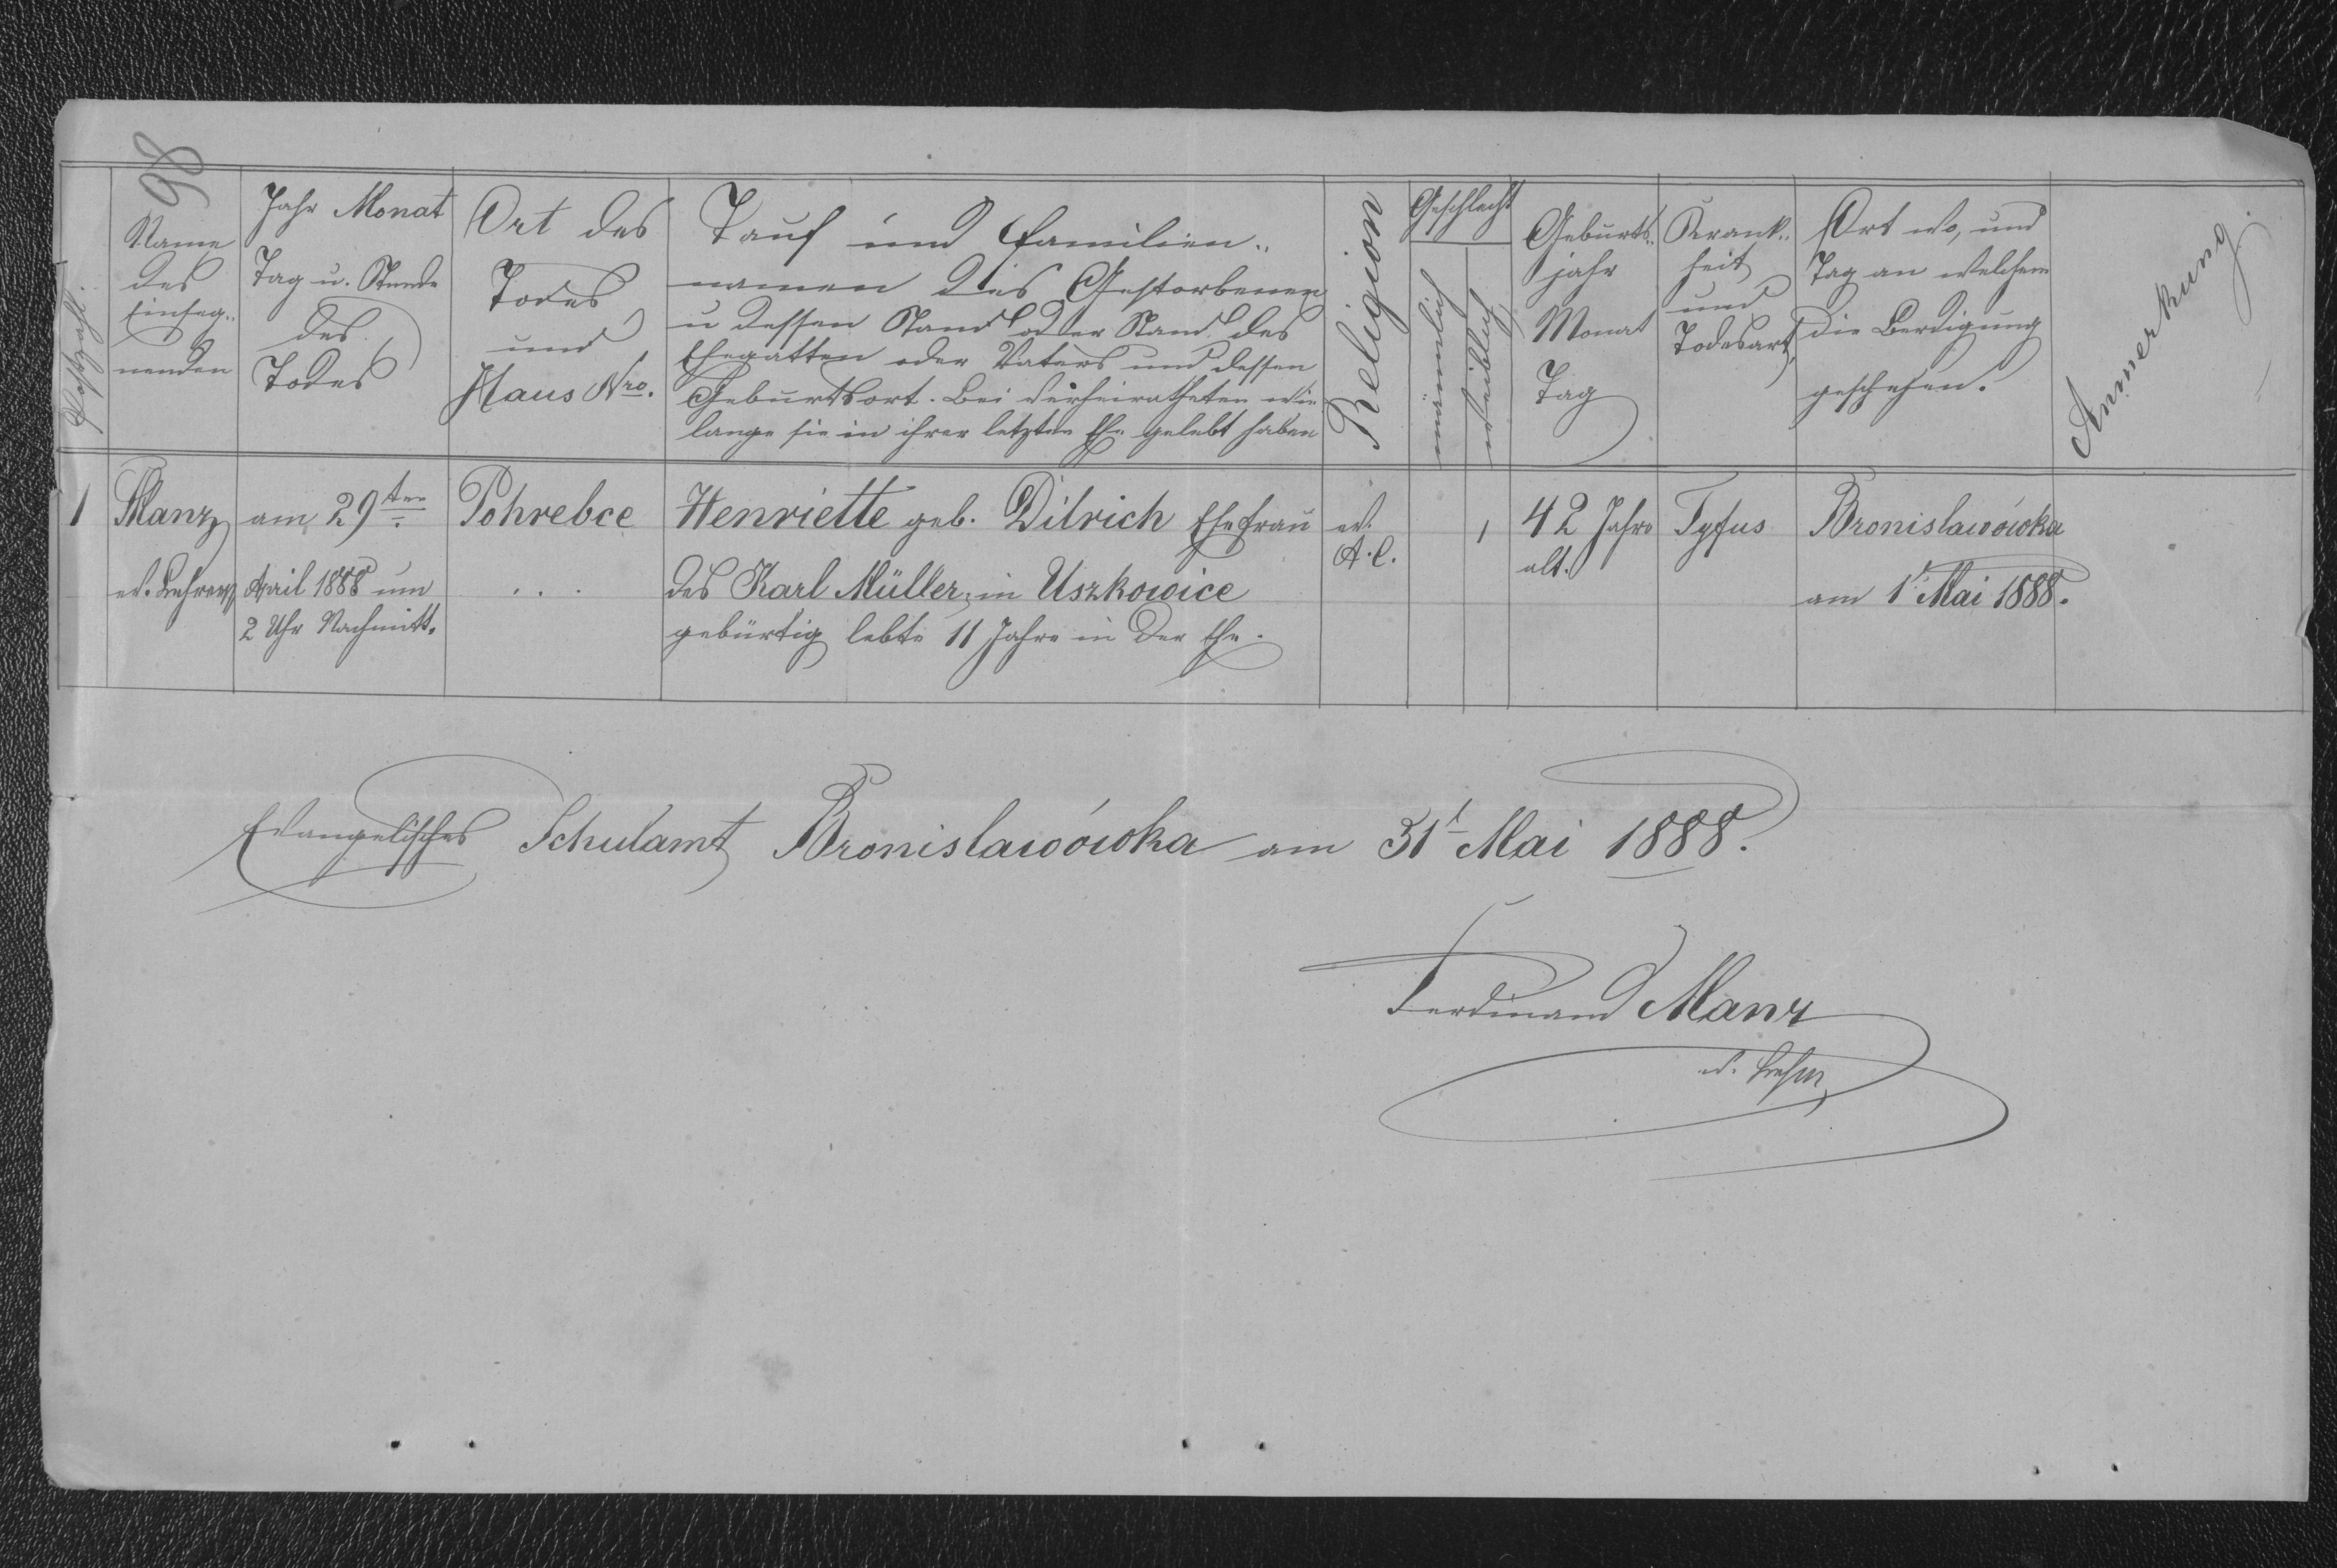 98
Postzahl.
Name
des
Einseg-
nenden
Jahr Monat
Tag u. Stunde
des
Todes
Ort des
Todes
und
Haus Nro.
Tauf und Familien-
namen des Gestorbenen
u dessen Stand oder Stand des
Ehegatten oder Vaters und dessen
Geburtsort. Bei Verheiratheten wie
lange sie in ihrer letzten Ehe gelebt haben
Religion
Geschlecht
männlich
weiblich
Geburts-
jahr
Monat
Tag
Krank-
heit
und
Todesart
Ort wo, und
Tag an welchem
die Berdigung
geschehen.
Anmerkung.
1
Manz
ev. Lehrer
am 29ten
April 1888 um
2 Uhr Nachmitt.
Pohrebce
. . .
Henriette geb. Ditrich Ehefrau
des Karl Müller, in Uszkowice
gebürtig lebte 11 Jahre in der Ehe.
ev.
A. C.
1
42 Jahre
alt.
Tyfus
Bronislawówka
am 1t Mai 1888.
Evangelisches Schulamt Bronislawówka am 31t Mai 1888.
Ferdinand Manz
ev. Lehrer